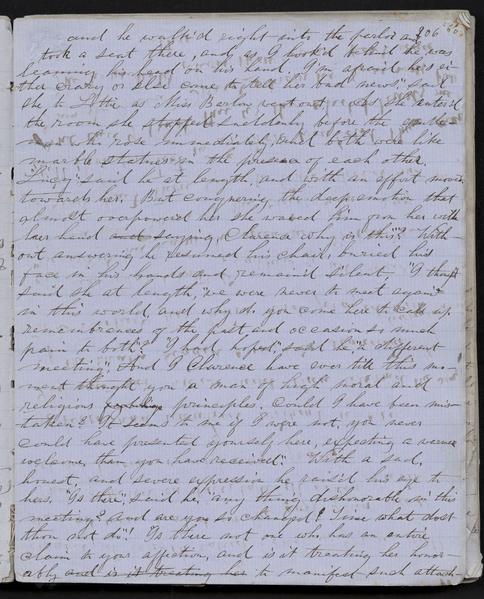 and he walk'd right into the parlor and 206
took a seat there, and as I look'd behind he was
leaning his head on his hand, I'm afraid he's ei-
ther crazy or else come to tell her bad news" said
she to Lottie as Miss Barlow went out. As she enter'd
the room she stopped suddenly before the
who rose immediately, and both were like
marble statues in the presence of each other.
"Lucy" said he at length, and with an effort moved
towards her. But conquering the deep emotion that
almost overpowered her she waved him from her with
her hand and saying, Clarence why is this"? With-
out answering he resumed his chair, buried his
face in his hands and remain'd silent. "I thought
said she at length, "we were never to meet again
in this world, and why do you come here to call up
remembrances of the past and occasion so much
pain to both? "I had hoped", said he "a different
meeting." And I Clarence have ever till this mo-
ment thought you a man of high moral and
religious principles. Could I have been mis-
taken? It seems to me if I were not, you never
could have presented yourself here, expecting a warmer
welcome, than you have received". With a sad,
honest, and severe expression he rais'd his eyes to
hers. "Is there" said he, "any thing dishonorable in this
meeting? And are you so changed? Time what dost
thou not do"! Is there not one who has an entire
claim to your affection, and is it treating her honor-
ably and is it treating her to manifest such attach-